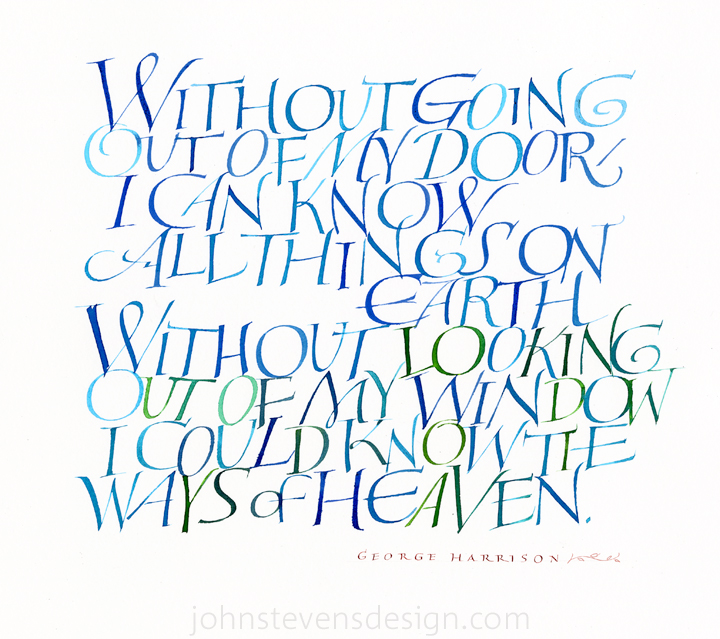 WITHOUT GOING
OUT OF MY DOOR
I CAN KNOW
ALL THINGS ON
EARTH
WITHOUT LOOKING
OUT OF MY WINDOW
I COULD KNOW THE
WAYS of HEAVEN.
GEORGE HARRISON
johnstevensdesign.com